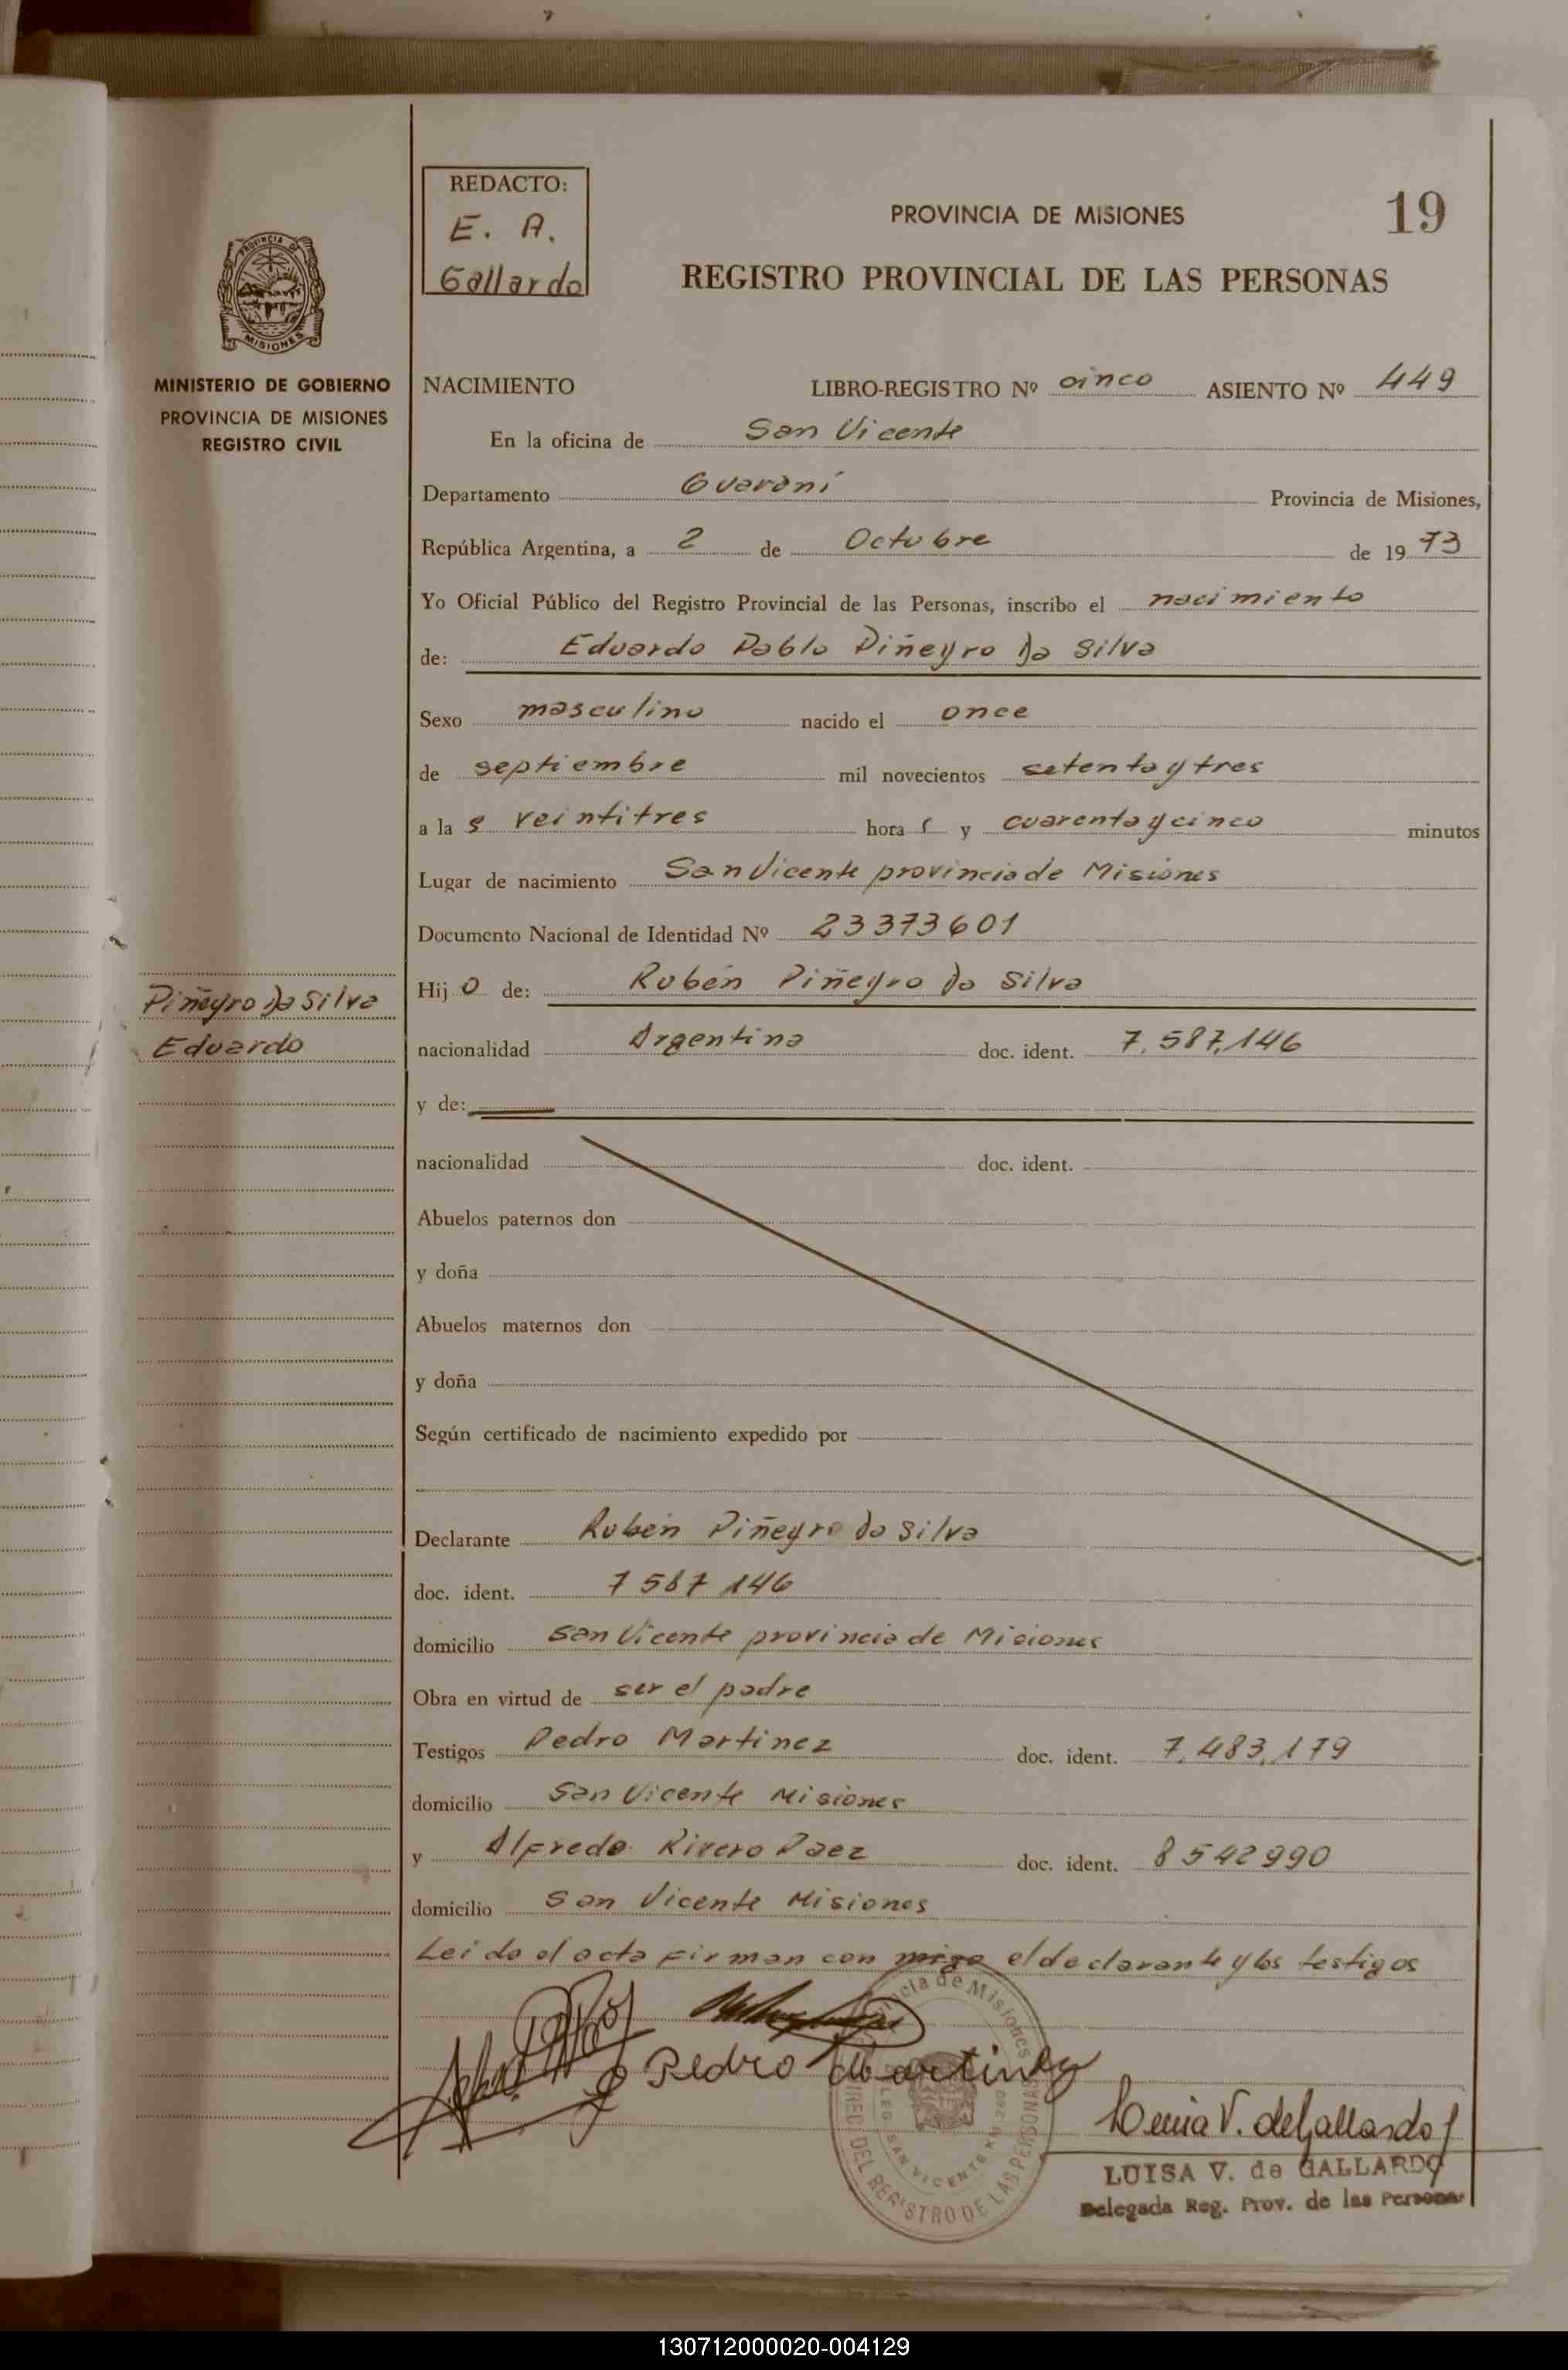 REDACTO:
E. A.
Gallardo
PROVINCIA DE MISIONES
19
REGISTRO PROVINCIAL DE LAS PERSONAS
PROVINCIA DE
MISIONES
MINISTERIO DE GOBIERNO
PROVINCIA DE MISIONES
REGISTRO CIVIL
NACIMIENTO LIBRO-REGISTRO Nº cinco ASIENTO Nº 449
En la oficina de San Vicente
Departamento Guaraní Provincia de Misiones,
República Argentina, a 2 de Octubre de 1973
Yo Oficial Público del Registro Provincial de las Personas, inscribo el nacimiento
de: Eduardo Pablo Piñeyro Da Silva
Sexo masculino nacido el once
de septiembre mil novecientos setenta y tres
a las veintitres horas y cuarenta y cinco minutos
Lugar de nacimiento San Vicente provincia de Misiones
Documento Nacional de Identidad Nº 23373601
Hijo de: Rubén Piñeyro Da Silva
Piñeyro Da Silva
Eduardo
nacionalidad Argentina doc. ident. 7.587.146
y de:
nacionalidad doc. ident.
Abuelos paternos don
y doña
Abuelos maternos don
y doña
Según certificado de nacimiento expedido por
Declarante Rubén Piñeyro Da Silva
doc. ident. 7587146
domicilio San Vicente provincia de Misiones
Obra en virtud de ser el padre
Testigos Pedro Martinez doc. ident. 7.483.179
domicilio San Vicente Misiones
y Alfredo Rivero Paez doc. ident. 8542990
domicilio San Vicente Misiones
Leido el acta firman con migo el declarante y los testigos
Pedro Martinez
Provincia de Misiones
DIREC. DEL REGISTRO DE LAS PERSONAS
DELEG. SAN VICENTE KM. 280
Luisa V. de Gallardo
LUISA V. de GALLARDO
Delegada Reg. Prov. de las Personas
130712000020-004129